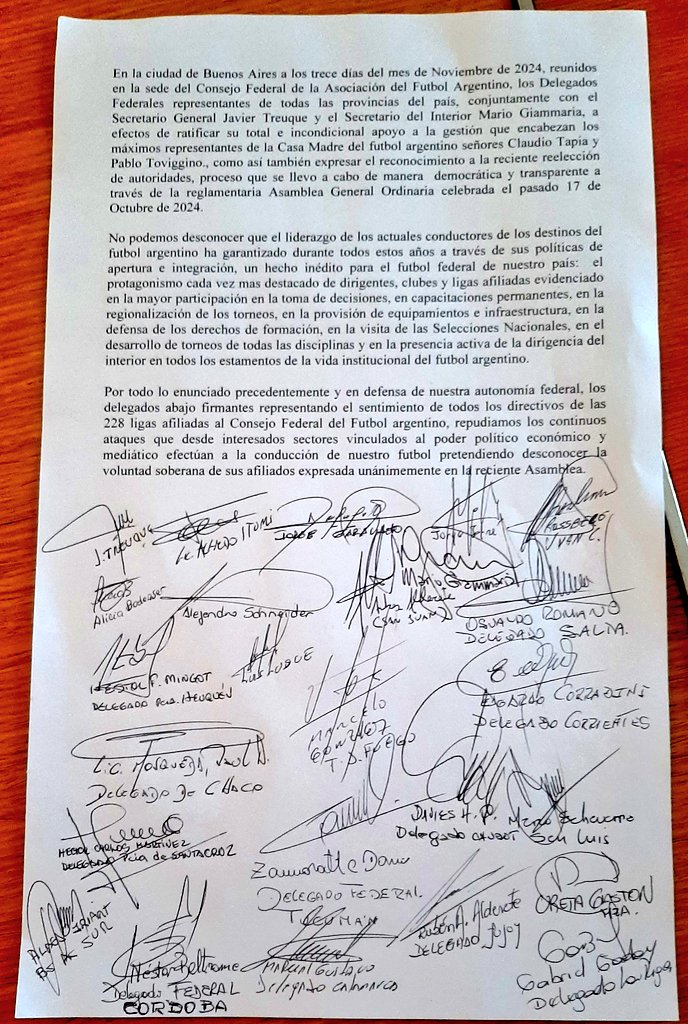 En la ciudad de Buenos Aires a los trece días del mes de Noviembre de 2024, reunidos
en la sede del Consejo Federal de la Asociación del Futbol Argentino, los Delegados
Federales representantes de todas las provincias del país, conjuntamente con el
Secretario General Javier Treuque y el Secretario del Interior Mario Giammaria, a
efectos de ratificar su total e incondicional apoyo a la gestión que encabezan los
máximos representantes de la Casa Madre del futbol argentino señores Claudio Tapia y
Pablo Toviggino., como así también expresar el reconocimiento a la reciente reelección
de autoridades, proceso que se llevo a cabo de manera democrática y transparente a
través de la reglamentaria Asamblea General Ordinaria celebrada el pasado 17 de
Octubre de 2024.
No podemos desconocer que el liderazgo de los actuales conductores de los destinos del
futbol argentino ha garantizado durante todos estos años a través de sus políticas de
apertura e integración, un hecho inédito para el futbol federal de nuestro país: el
protagonismo cada vez mas destacado de dirigentes, clubes y ligas afiliadas evidenciado
en la mayor participación en la toma de decisiones, en capacitaciones permanentes, en la
regionalización de los torneos, en la provisión de equipamientos e infraestructura, en la
defensa de los derechos de formación, en la visita de las Selecciones Nacionales, en el
desarrollo de torneos de todas las disciplinas y en la presencia activa de la dirigencia del
interior en todos los estamentos de la vida institucional del futbol argentino.
Por todo lo enunciado precedentemente y en defensa de nuestra autonomía federal, los
delegados abajo firmantes representando el sentimiento de todos los directivos de las
228 ligas afiliadas al Consejo Federal del Futbol argentino, repudiamos los continuos
ataques que desde interesados sectores vinculados al poder político económico y
mediático efectúan a la conducción de nuestro futbol pretendiendo desconocer la
voluntad soberana de sus afiliados expresada unánimemente en la reciente Asamblea.
J. TREUQUE
Lic. Alfredo ITURRI
JORGE
Jorge
IVAN C.
Alicia
Alejandro Schneider
Mario Giammaria
(SAN JUAN)
OSVALDO ROMANO
DELEGADO SALTA.
NESTOR P. MINGOT
DELEGADO Pcia. NEUQUÉN
LUIS LUQUE
MARCELO
GONZALEZ
T. D. FUEGO
EDGARDO CORRADINI
DELEGADO CORRIENTES
Lic. MOSQUEDA, RAUL
DELEGADO DE CHACO
DAVIES H. P.
Delegado CHUBUT
San Luis
HECTOR CARLOS MARTINEZ
DELEGADO Pcia de SANTA CRUZ
DELEGADO FEDERAL
TUCUMAN
Rubén A. Alderete
DELEGADO Jujuy
URETA GASTON
MZA.
BS AS SUR
Néstor Beltrame
Delegado FEDERAL
CORDOBA
Delegado Catamarca
Gabriel Godoy
Delegado La Rioja